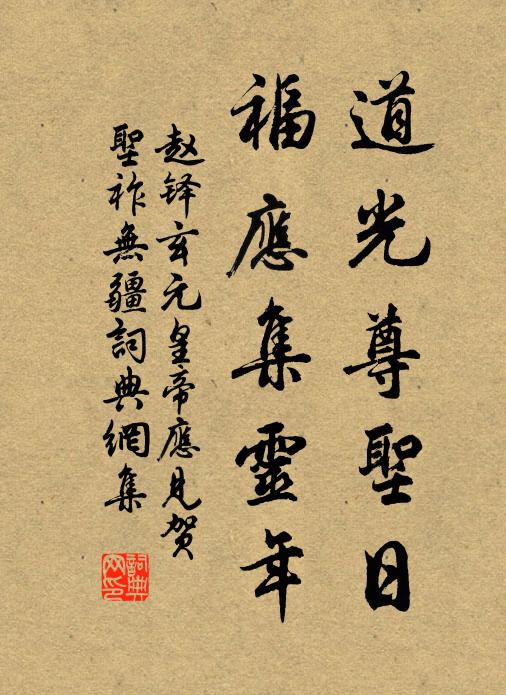 道光尊聖日
福應集靈年
赵铎玄元皇帝應見賀
聖祚無疆詞典網集
詞典网印